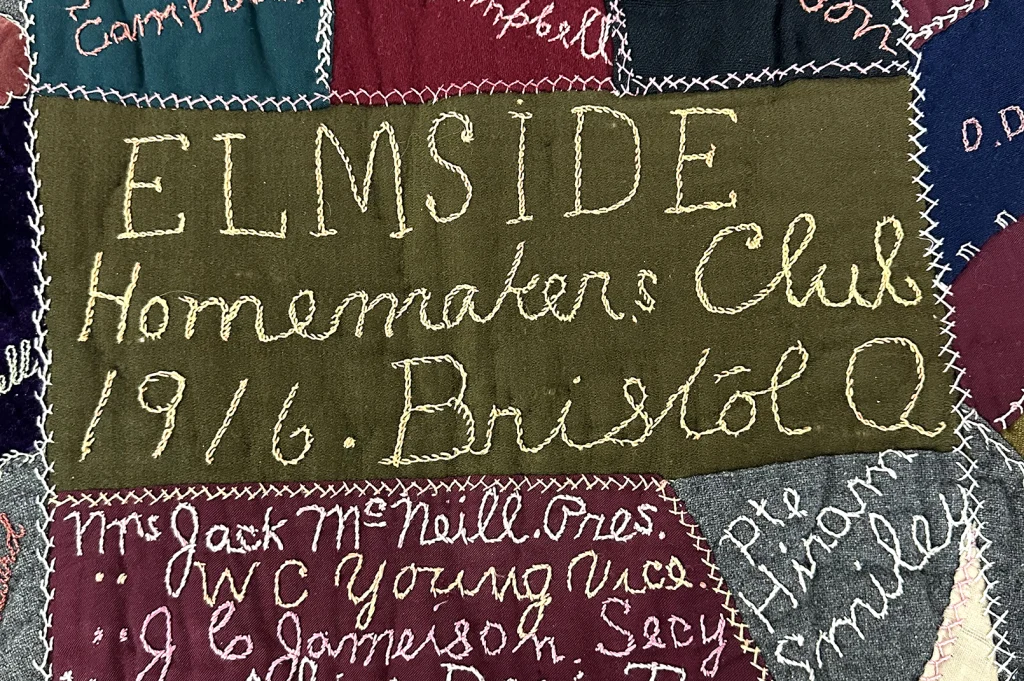 Campbell
mpbell
O.D
ELMSIDE
Homemakers Club
1916. Bristol Q
Mrs Jack McNeill. Pres.
" W C Young Vice.
" J C Jameison. Secy
Pte
Hiram
Smiley